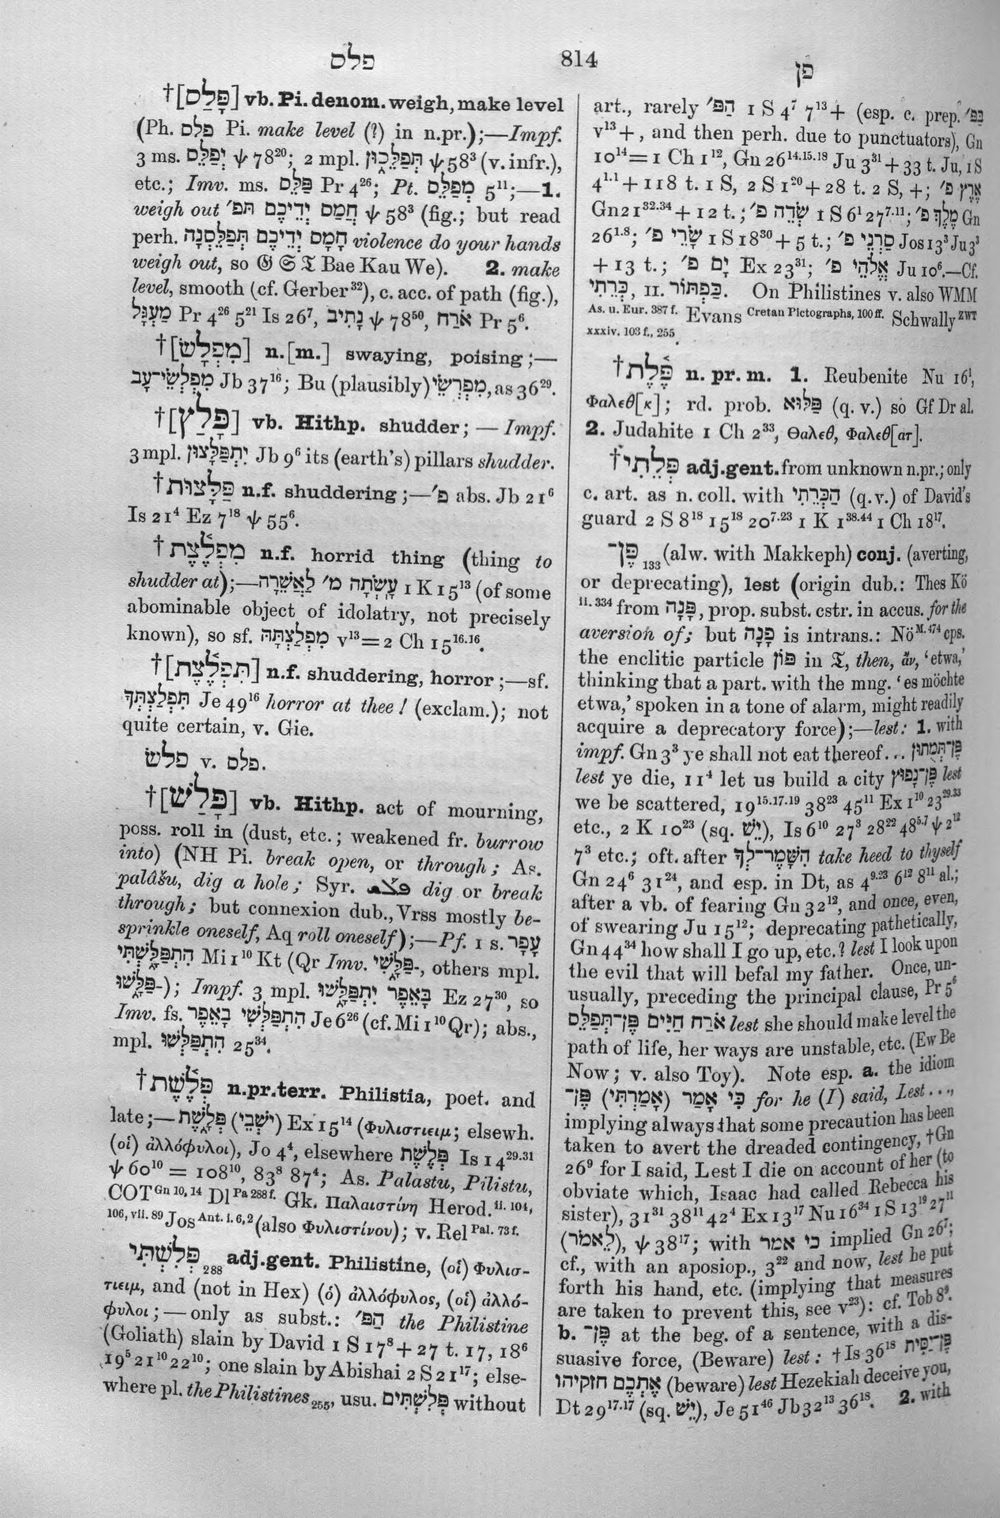 פלס
814
פן
†[פָּלַס] vb. Pi. denom. weigh, make level
(Ph. פלס Pi. make level (?) in n.pr.);—Impf.
3 ms. יְפַלֵּס ψ 78²⁰; 2 mpl. תְּפַלֵּכוּן ψ 58³ (v. infr.),
etc.; Imv. ms. פַּלֵּס Pr 4²⁶; Pt. מְפַלֵּס 5¹¹;—1.
weigh out חֲמַס יְדֵיכֶם תּפ׳ ψ 58³ (fig.; but read
perh. חָמָס יְדֵיכֶם תְּפַלֵּסְנָה violence do your hands
weigh out, so 𝔊 𝔖 𝔗 Bae Kau We). 2. make
level, smooth (cf. Gerber³²), c. acc. of path (fig.),
מַעְגָּל Pr 4²⁶ 5²¹ Is 26⁷, נָתִיב ψ 78⁵⁰, אֹרַח Pr 5⁶.
†[מִפְלָשׂ] n.[m.] swaying, poising;—
מִפְלְשֵׂי־עָב Jb 37¹⁶; Bu (plausibly) מִפְרְשֵׂי׳, as 36²⁹.
†[פָּלַץ] vb. Hithp. shudder;—Impf.
3 mpl. יִתְפַלָּצוּן Jb 9⁶ its (earth's) pillars shudder.
†פַּלָּצוּת n.f. shuddering;—פ׳ abs. Jb 21⁶
Is 21⁴ Ez 7¹⁸ ψ 55⁶.
†מִפְלֶ֫צֶת n.f. horrid thing (thing to
shudder at);—עָשְׂתָה מ׳ לָאֲשֵׁרָה 1 K 15¹³ (of some
abominable object of idolatry, not precisely
known), so sf. מִפְלַצְתָּהּ v¹³ = 2 Ch 15¹⁶·¹⁶.
†[תִּפְלֶ֫צֶת] n.f. shuddering, horror;—sf.
תִּפְלַצְתְּךָ Je 49¹⁶ horror at thee! (exclam.); not
quite certain, v. Gie.
פלשׂ v. פלס.
†[פָּלַשׁ] vb. Hithp. act of mourning,
poss. roll in (dust, etc.; weakened fr. burrow
into) (NH Pi. break open, or through; As.
palâšu, dig a hole; Syr. dig or break
through; but connexion dub., Vrss mostly be-
sprinkle oneself, Aq roll oneself);—Pf. 1 s. עָפָר
הִתְפַּלָּשְׁתִּי Mi 1¹⁰ Kt (Qr Imv. ־פַּלָּשִׁי, others mpl.
־פַּלָּשׁוּ); Impf. 3 mpl. בָּאֵפֶר יִתְפַּלָּשׁוּ Ez 27³⁰, so
Imv. fs. הִתְפַּלְּשִׁי בָאֵפֶר Je 6²⁶ (cf. Mi 1¹⁰ Qr); abs.,
mpl. הִתְפַּלְּשׁוּ 25³⁴.
†פְּלֶ֫שֶׁת n.pr.terr. Philistia, poet. and
late;—(יֹשְׁבֵי) פְּלָשֶׁת Ex 15¹⁴ (Φυλιστιειμ; elsewh.
(οἱ) ἀλλόφυλοι), Jo 4⁴, elsewhere פְּלֶשֶׁת Is 14²⁹·³¹
ψ 60¹⁰ = 108¹⁰, 83⁸ 87⁴; As. Palastu, Pilistu,
COT Gn 10, 14 Dl Pa 288 f. Gk. Παλαιστίνη Herod. ii. 104,
106, vii. 89 Jos Ant. i. 6, 2 (also Φυλιστίνου); v. Rel Pal. 73 f.
פְּלִשְׁתִּי ₂₈₈ adj.gent. Philistine, (οἱ) Φυλισ-
τιειμ, and (not in Hex) (ὁ) ἀλλόφυλος, (οἱ) ἀλλό-
φυλοι;—only as subst.: הַפּ׳ the Philistine
(Goliath) slain by David 1 S 17⁸ + 27 t. 17, 18⁶
19⁵ 21¹⁰ 22¹⁰; one slain by Abishai 2 S 21¹⁷; else-
where pl. the Philistines ₂₅₅, usu. פְּלִשְׁתִּים without
art., rarely הַפּ׳ 1 S 4⁷ 7¹³ + (esp. c. prep. בַּפּ׳
v¹³ +, and then perh. due to punctuators), Gn
10¹⁴ = 1 Ch 1¹², Gn 26¹⁴·¹⁵·¹⁸ Ju 3³¹ + 33 t. Ju, 1 S
4¹·¹ + 118 t. 1 S, 2 S 1²⁰ + 28 t. 2 S, +; אֶרֶץ פ׳
Gn 21³²·³⁴ + 12 t.; שְׂדֵה פ׳ 1 S 6¹ 27⁷·¹¹; מֶלֶךְ פ׳ Gn
26¹·⁸; שָׂרֵי פ׳ 1 S 18³⁰ + 5 t.; סַרְנֵי פ׳ Jos 13³ Ju 3³
+ 13 t.; יָם פ׳ Ex 23³¹; אֱלֹהֵי פ׳ Ju 10⁶.—Cf.
כְּרֵתִי, II. כַּפְתּוֹר. On Philistines v. also WMM
As. u. Eur. 387 f. Evans Cretan Pictographs, 100 ff. Schwally ZWT
xxxiv. 103 f., 255
†פֶּ֫לֶת n. pr. m. 1. Reubenite Nu 16¹,
Φαλεθ[κ]; rd. prob. פַּלּוּא (q. v.) so Gf Dr al.
2. Judahite 1 Ch 2³³, Θαλεθ, Φαλεθ[ατ].
†פְּלֵתִי adj.gent. from unknown n.pr.; only
c. art. as n. coll. with הַכְּרֵתִי (q.v.) of David's
guard 2 S 8¹⁸ 15¹⁸ 20⁷·²³ 1 K 1³⁸·⁴⁴ 1 Ch 18¹⁷.
פֶּן־ ₁₃₃ (alw. with Makkeph) conj. (averting,
or deprecating), lest (origin dub.: Thes Kö
ii. 334 from פָּנָה, prop. subst. cstr. in accus. for the
aversion of; but פָּנָה is intrans.: Nö M. 474 cps.
the enclitic particle פּוֹן in 𝔗, then, ἄν, 'etwa,'
thinking that a part. with the mng. 'es möchte
etwa,' spoken in a tone of alarm, might readily
acquire a deprecatory force);—lest: 1. with
impf. Gn 3³ ye shall not eat thereof... פֶּן־תְּמֻתוּן
lest ye die, 11⁴ let us build a city פֶּן־נָפוּץ lest
we be scattered, 19¹⁵·¹⁷·¹⁹ 38²³ 45¹¹ Ex 1¹⁰ 23²⁹·³³
etc., 2 K 10²³ (sq. יֵשׁ), Is 6¹⁰ 27³ 28²² 48⁵·⁷ ψ 2¹²
7³ etc.; oft. after הִשָּׁמֶר־לְךָ take heed to thyself
Gn 24⁶ 31²⁴, and esp. in Dt, as 4⁹·²³ 6¹² 8¹¹ al.;
after a vb. of fearing Gn 32¹², and once, even,
of swearing Ju 15¹²; deprecating pathetically,
Gn 44³⁴ how shall I go up, etc.? lest I look upon
the evil that will befal my father. Once, un-
usually, preceding the principal clause, Pr 5⁶
אֹרַח חַיִּים פֶּן־תְּפַלֵּס lest she should make level the
path of life, her ways are unstable, etc. (Ew Be
Now; v. also Toy). Note esp. a. the idiom
כִּי אָמַר (אָמַרְתִּי) פֶּן־ for he (I) said, Lest...,
implying always that some precaution has been
taken to avert the dreaded contingency, †Gn
26⁹ for I said, Lest I die on account of her (to
obviate which, Isaac had called Rebecca his
sister), 31³¹ 38¹¹ 42⁴ Ex 13¹⁷ Nu 16³⁴ 1 S 13¹⁹ 27¹¹
(לֵאמֹר), ψ 38¹⁷; with כי אמר implied Gn 26⁷;
cf., with an aposiop., 3²² and now, lest he put
forth his hand, etc. (implying that measures
are taken to prevent this, see v²³): cf. Tob 8⁹.
b. פֶּן־ at the beg. of a sentence, with a dis-
suasive force, (Beware) lest: †Is 36¹⁸ פֶּן־יַסִּית
אֶתְכֶם חזקיהו (beware) lest Hezekiah deceive you,
Dt 29¹⁷·¹⁷ (sq. יֵשׁ), Je 51⁴⁶ Jb 32¹³ 36¹⁸. 2. with